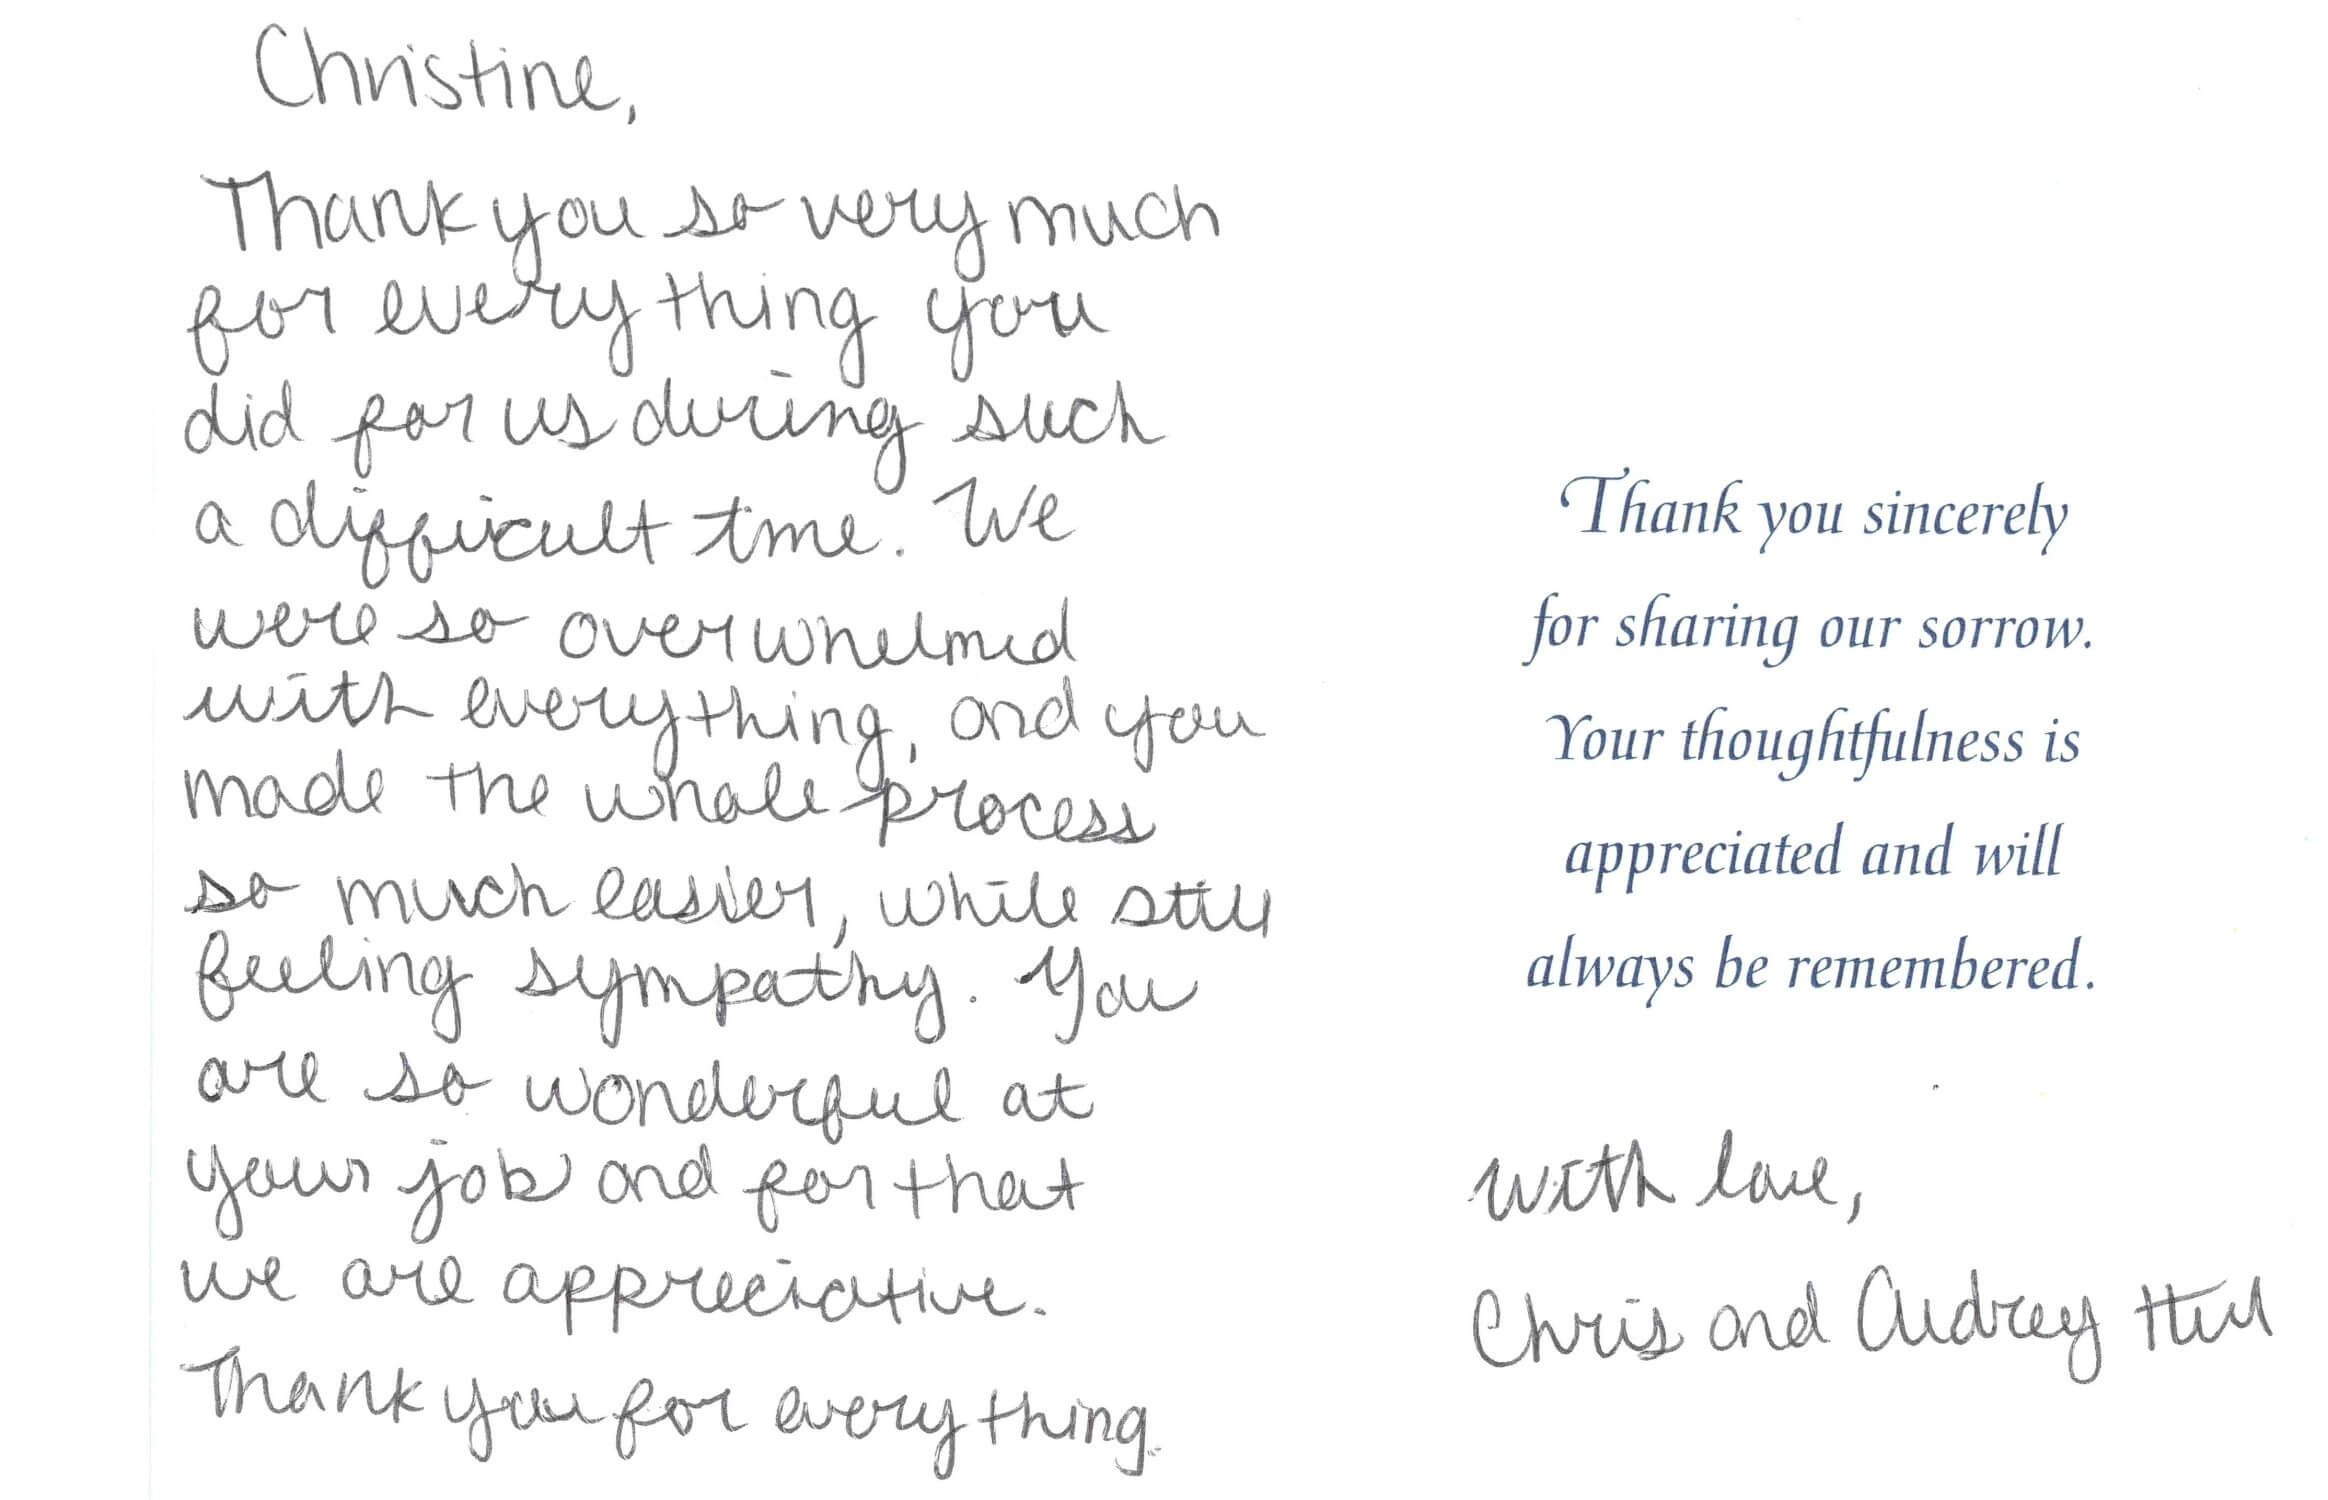 Christine,
Thank you so very much
for everything you
did for us during such
a difficult time. We
were so overwhelmed
with everything, and you
made the whole process
so much easier, while still
feeling sympathy. You
are so wonderful at
your job and for that
we are appreciative.
Thank you for everything.
Thank you sincerely
for sharing our sorrow.
Your thoughtfulness is
appreciated and will
always be remembered.
with love,
Chris and Audrey Hill